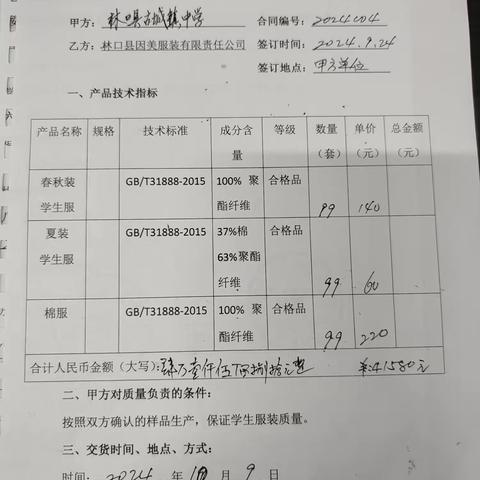 甲方：林口县古城镇中学 合同编号：2024004
乙方：林口县因美服装有限责任公司 签订时间：2024.9.24
签订地点：甲方单位
一、产品技术指标
产品名称 规格 技术标准 成分含量 等级 数量（套） 单价（元） 总金额（元）
春秋装学生服 GB/T31888-2015 100% 聚酯纤维 合格品 99 140
夏装学生服 GB/T31888-2015 37%棉 63%聚酯纤维 合格品 99 60
棉服 GB/T31888-2015 100% 聚酯纤维 合格品 99 220
合计人民币金额（大写）：肆万壹仟伍百捌拾元整 ¥:41580元
二、甲方对质量负责的条件：
按照双方确认的样品生产，保证学生服装质量。
三、交货时间、地点、方式：
时间：2024 年 10 月 9 日